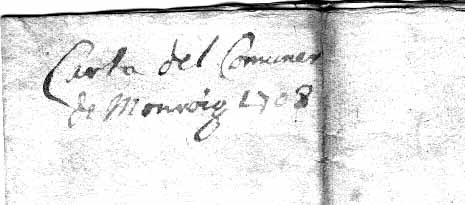 Carta del Comuner
de Monroig 1708